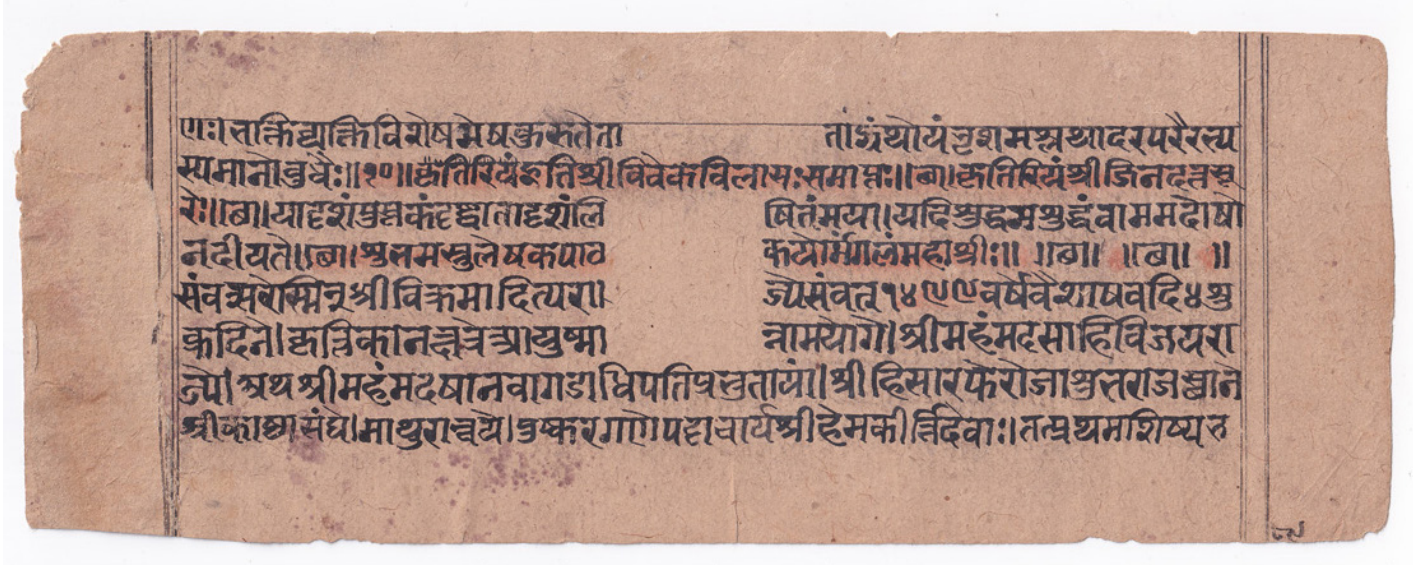 णः। तक्तिव्यक्तिविशेषमेषकुरुतैता तांग्रंथोयंनृशमश्नथादरपरैरत्य
स्यमानोबुधैः॥१०॥कृतिरियंइतिश्रीविवेकविलायःसमाप्तः॥छ॥कृतिरियंश्रीजिनदत्तसू
रेः॥छ॥यादृशंपुस्तकंदृष्ट्वातादृशंलि षितंमया।यदिशुद्धमशुद्धंवाममदोषो
नदीयते॥छ॥शुभमस्तुलेषकपाठ कयोर्मंगलंमहाश्रीः॥ ॥छ॥ ॥छ॥ ॥
संवत्सरेस्मिन्श्रीविक्रमादित्यरा ज्येसंवत्१४९९वर्षेवैशाषवदि४शु
क्रदिने।कृत्तिकानक्षत्रेआयुष्मा न्नामयोगे।श्रीमहंमदसाहिविजयरा
ज्ये।अथश्रीमहंमदषानवागडाधिपतिप्रभुतायां।श्रीहिसारपेरोजाशुभराजस्थाने
श्रीकाष्ठासंघे।माथुरान्वये।पुष्करगणेपट्टाचार्यश्रीहेमकीर्त्तिदेवाः।तत्प्रथमशिष्यत